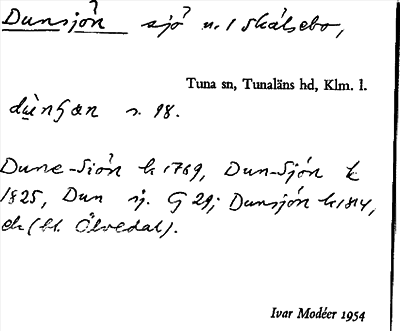 Dunsjön sjö n. i Skälsebo,
Tuna sn, Tunaläns hd, Klm. l.
s. 98.
Dune-Siön k 1769, Dun-Sjön k
1825, Dun sj. G 29; Dunsjön k 1814,
ek (bl. Ölvedal).
Ivar Modéer 1954